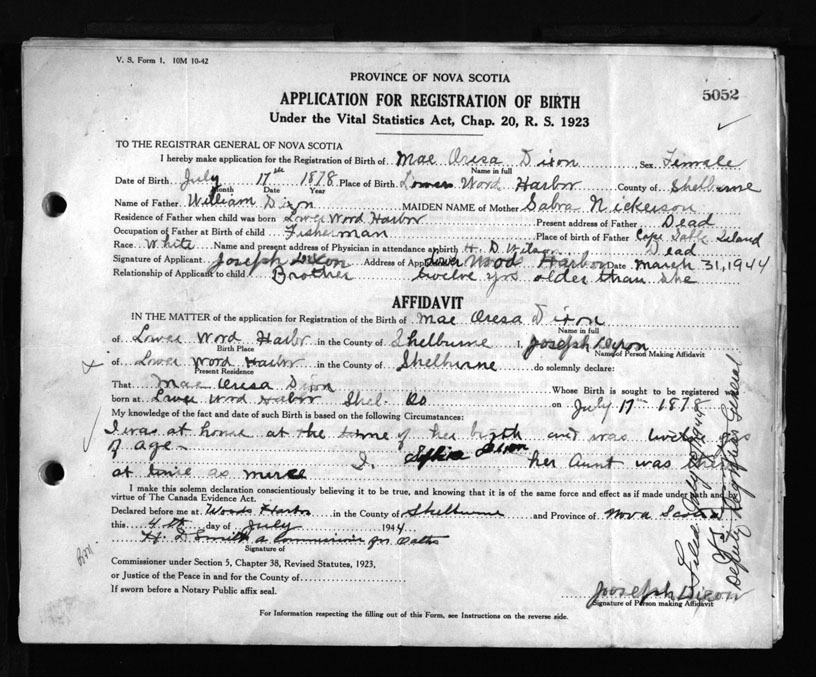 V. S. Form 1. 10M 10-42
PROVINCE OF NOVA SCOTIA
5052
APPLICATION FOR REGISTRATION OF BIRTH
Under the Vital Statistics Act, Chap. 20, R. S. 1923
TO THE REGISTRAR GENERAL OF NOVA SCOTIA
I hereby make application for the Registration of Birth of Mae Oresa Dixon Sex Female
Name in full
Date of Birth July 17th 1878 Place of Birth Lower Wood Harbor County of Shelburne
Month Date Year
Name of Father William Dixon MAIDEN NAME of Mother Sabra Nickerson
Residence of Father when child was born Lower Wood Harbor Present address of Father Dead
Occupation of Father at Birth of child Fisherman Place of birth of Father Cape Sable Island
Race White Name and present address of Physician in attendance at birth H. D. Wilson Dead
Signature of Applicant Joseph Dixon Address of Applicant Lower Wood Harbor Date March 31, 1944
Relationship of Applicant to child Brother twelve yrs older than she
AFFIDAVIT
IN THE MATTER of the application for Registration of the Birth of Mae Oresa Dixon
Name in full
of Lower Wood Harbor in the County of Shelburne I, Joseph Dixon
Birth Place Name of Person Making Affidavit
of Lower Wood Harbor in the County of Shelburne do solemnly declare:
Present Residence
That Mae Oresa Dixon Whose Birth is sought to be registered was
born at Lower Wood Harbor Shel. Co on July 17th 1878
My knowledge of the fact and date of such Birth is based on the following Circumstances:
I was at house at the time of her birth and was twelve yrs
of age - I. Sophia Dixon her Aunt was there
at time as
I make this solemn declaration conscientiously believing it to be true, and knowing that it is of the same force and effect as if made under oath and by
virtue of The Canada Evidence Act.
Declared before me at Woods Harbor in the County of Shelburne and Province of Nova Scotia
this 4th day of July 1944
H. D Smith a Commissioner for Oaths
Signature of
Commissioner under Section 5, Chapter 38, Revised Statutes, 1923,
or Justice of the Peace in and for the County of
If sworn before a Notary Public affix seal.
Joseph Dixon
Signature of Person making Affidavit
For Information respecting the filling out of this Form, see Instructions on the reverse side.
Filed July
Deputy Registrar General